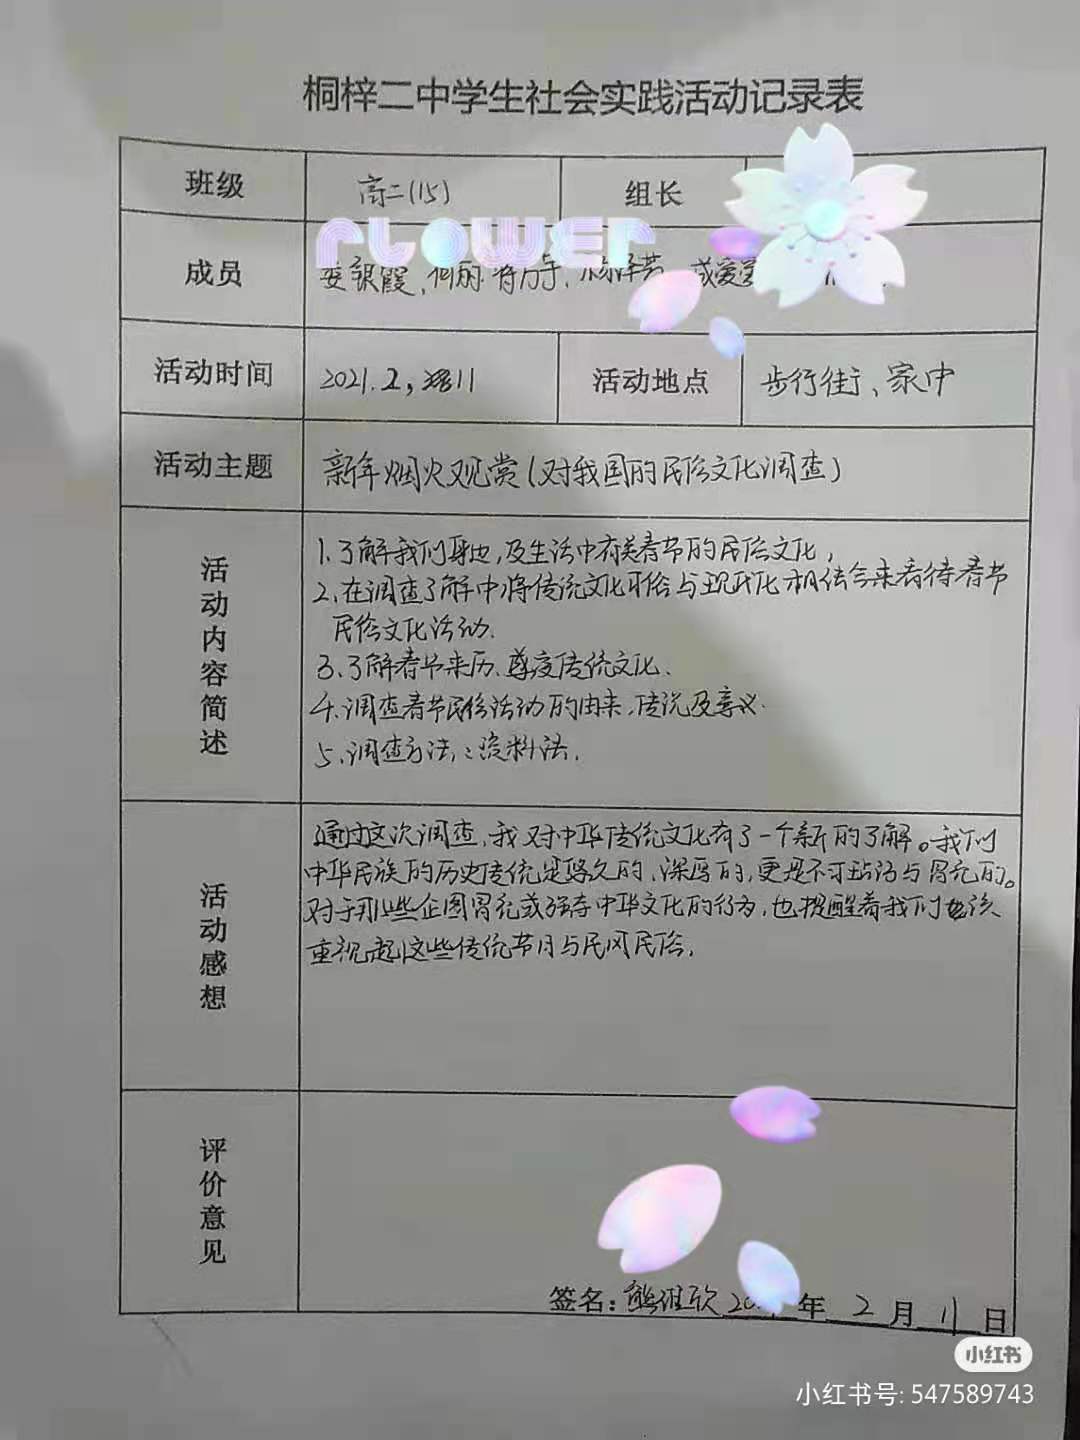 桐梓二中学生社会实践活动记录表
班级 高二(15) 组长
FLOWER
成员 何丽
活动时间 2021.2, 11 活动地点 步行街、家中
活动主题 新年烟火观赏(对我国的民俗文化调查)
活动内容简述
1.了解我们身边,及生活中有关春节的民俗文化,
2.在调查了解中将传统文化习俗与现代化相结合来看待春节
民俗文化活动.
3.了解春节来历、尊度传统文化.
4.调查春节民俗活动的由来,传说及意义.
5.调查方法:资料法.
活动感想
通过这次调查,我对中华传统文化有了一个新的了解。我们
中华民族的历史传统是悠久的,深厚的,更是不可玷污与冒充的。
对于那些企图冒充或强夺中华文化的行为,也提醒着我们应该
重视起这些传统节日与民风民俗.
评价意见
签名: 年 2 月 11 日
小红书
小红书号: 547589743